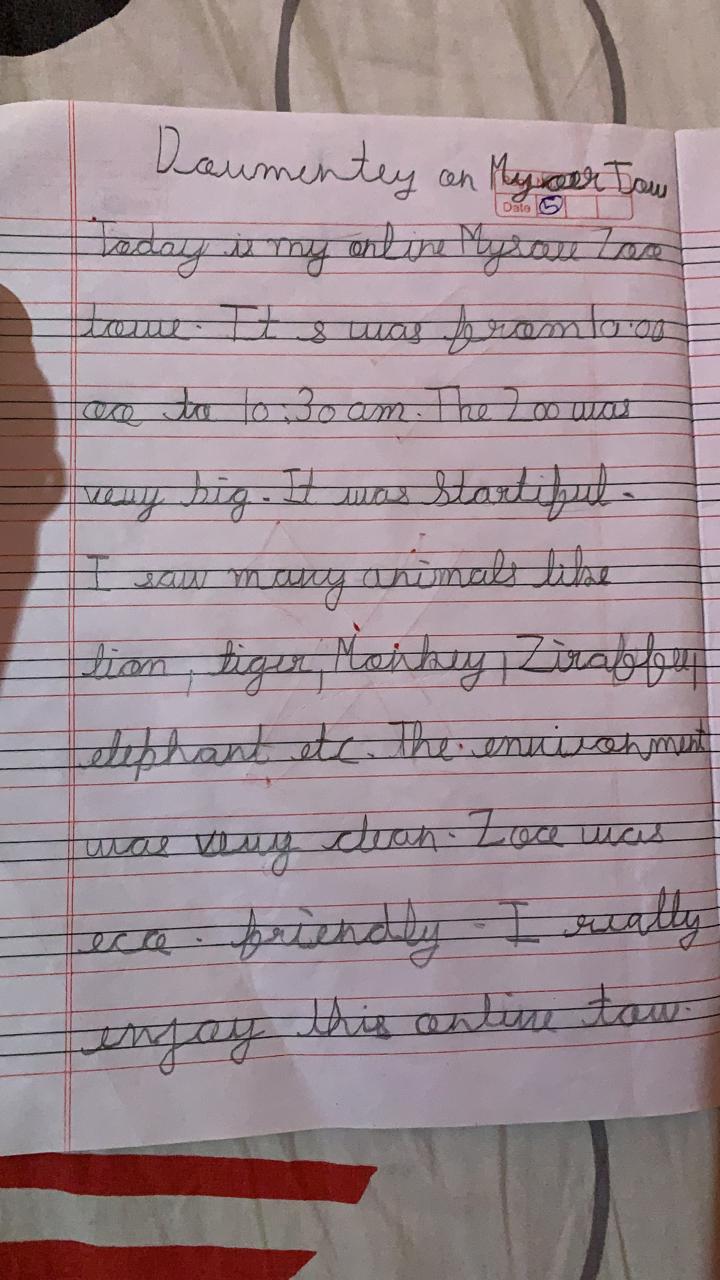 Doumentey on Mysoor Tow
Date 5
Today is my online Mysore Zoo
towe. It s was from 10:00
oo to 10:30 am. The Zoo was
very big. It was Startiful.
I saw many animals like
lion, tiger, Monkey, Ziraffey,
elephant etc. The environment
was very clean. Zoo was
eco. friendly. I really
enjoy this online tow.